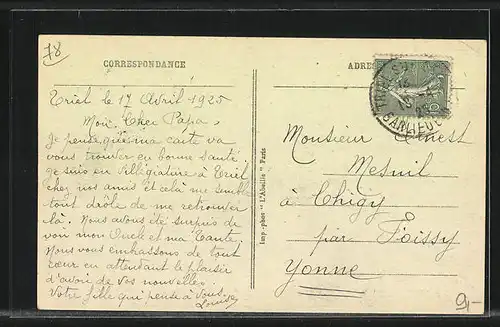 78
CORRESPONDANCE
Triel le 17 Avril 1925
Mon Cher Papa,
Je pense que ma carte va
vous trouver en bonne santé.
je suis en villégiature à Triel
chez nos amis et celà me semble
tout drôle de me retrouver
là. Nous avons été surpris de
voir mon Oncle et ma Tante.
Nous vous embrassons de tout
cœur en attendant le plaisir
d'avoir de vos nouvelles.
Votre fille qui pense à vous.
Louise
Imp.-phot "L'Abeille" Paris
ADRES
Monsieur Ernest
Mesnil
à Chigy
par Foissy
Yonne
9,-